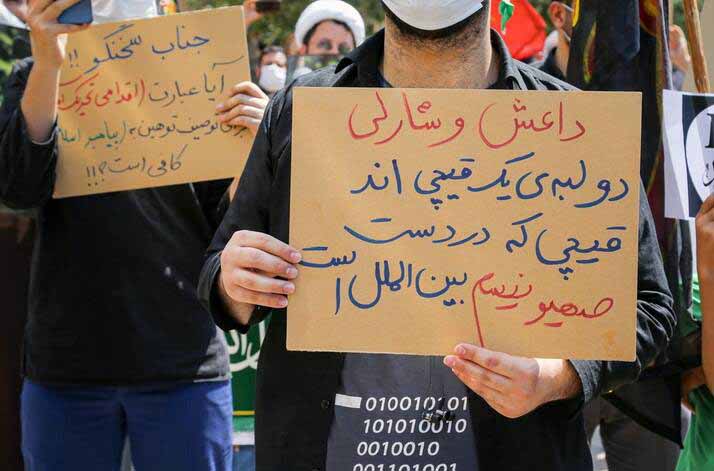 جناب سخنگو !!
آیا عبارت (اقدامی تحریک
برای توصیف توهین به (پیامبر اسلام
کافی است؟!!
داعش و شارلی
دو لبه‌ی یک قیچی اند
قیچی که در دست
صهیونیسم بین الملل است
010010101
101010010
0010010
001101001